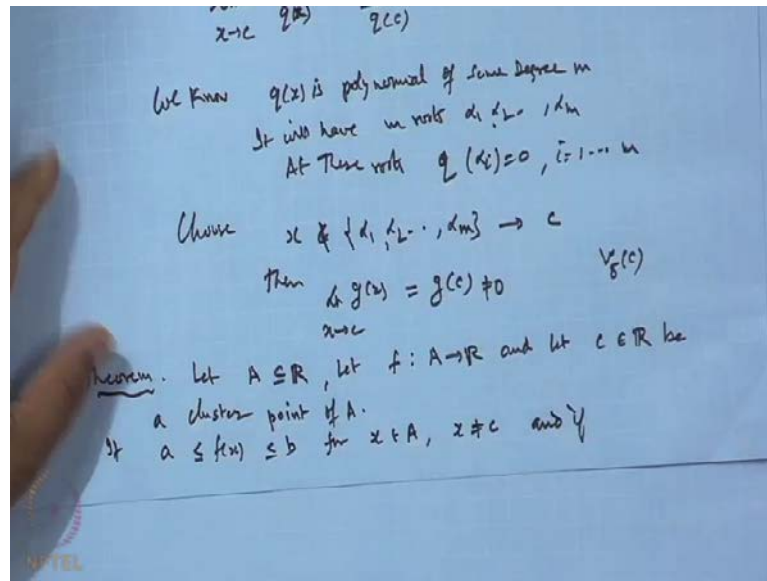 x→c q(x) q(c)
We know q(x) is polynomial of some Degree m
It will have m roots α1 α2.. , αm
At These roots q (αi)=0 , i=1... m
Choose x ∉ {α1, α2.., αm} → c
Then lt q(x) = q(c) ≠0 Vδ(c)
x→c
Theorem. Let A ⊆ R, Let f: A→R and let c ∈ R be
a cluster point of A.
If a ≤ f(x) ≤ b for x ∈ A, x ≠ c and if
NPTEL